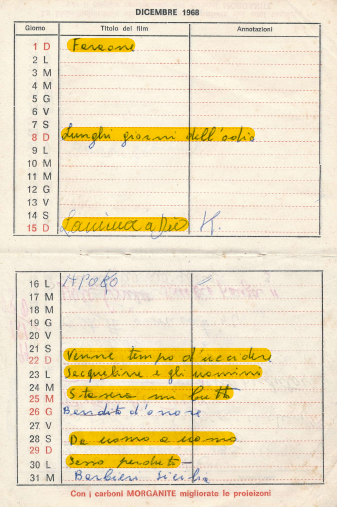 DICEMBRE 1968
Giorno Titolo del film Annotazioni
1 D Faraone
2 L
3 M
4 M
5 G
6 V
7 S
8 D Lunghi giorni dell'odio
9 L
10 M
11 M
12 G
13 V
14 S
15 D K.
16 L
17 M
18 M
19 G
20 V
21 S
22 D Venne tempo d'uccidere
23 L Jacqueline e gli uomini
24 M
25 M Stasera mi butto
26 G Bandito d'onore
27 V
28 S Da uomo a uomo
29 D
30 L Sesso perduto -
31 M Barbieri Sicilia
Con i carboni MORGANITE migliorate le proiezioni